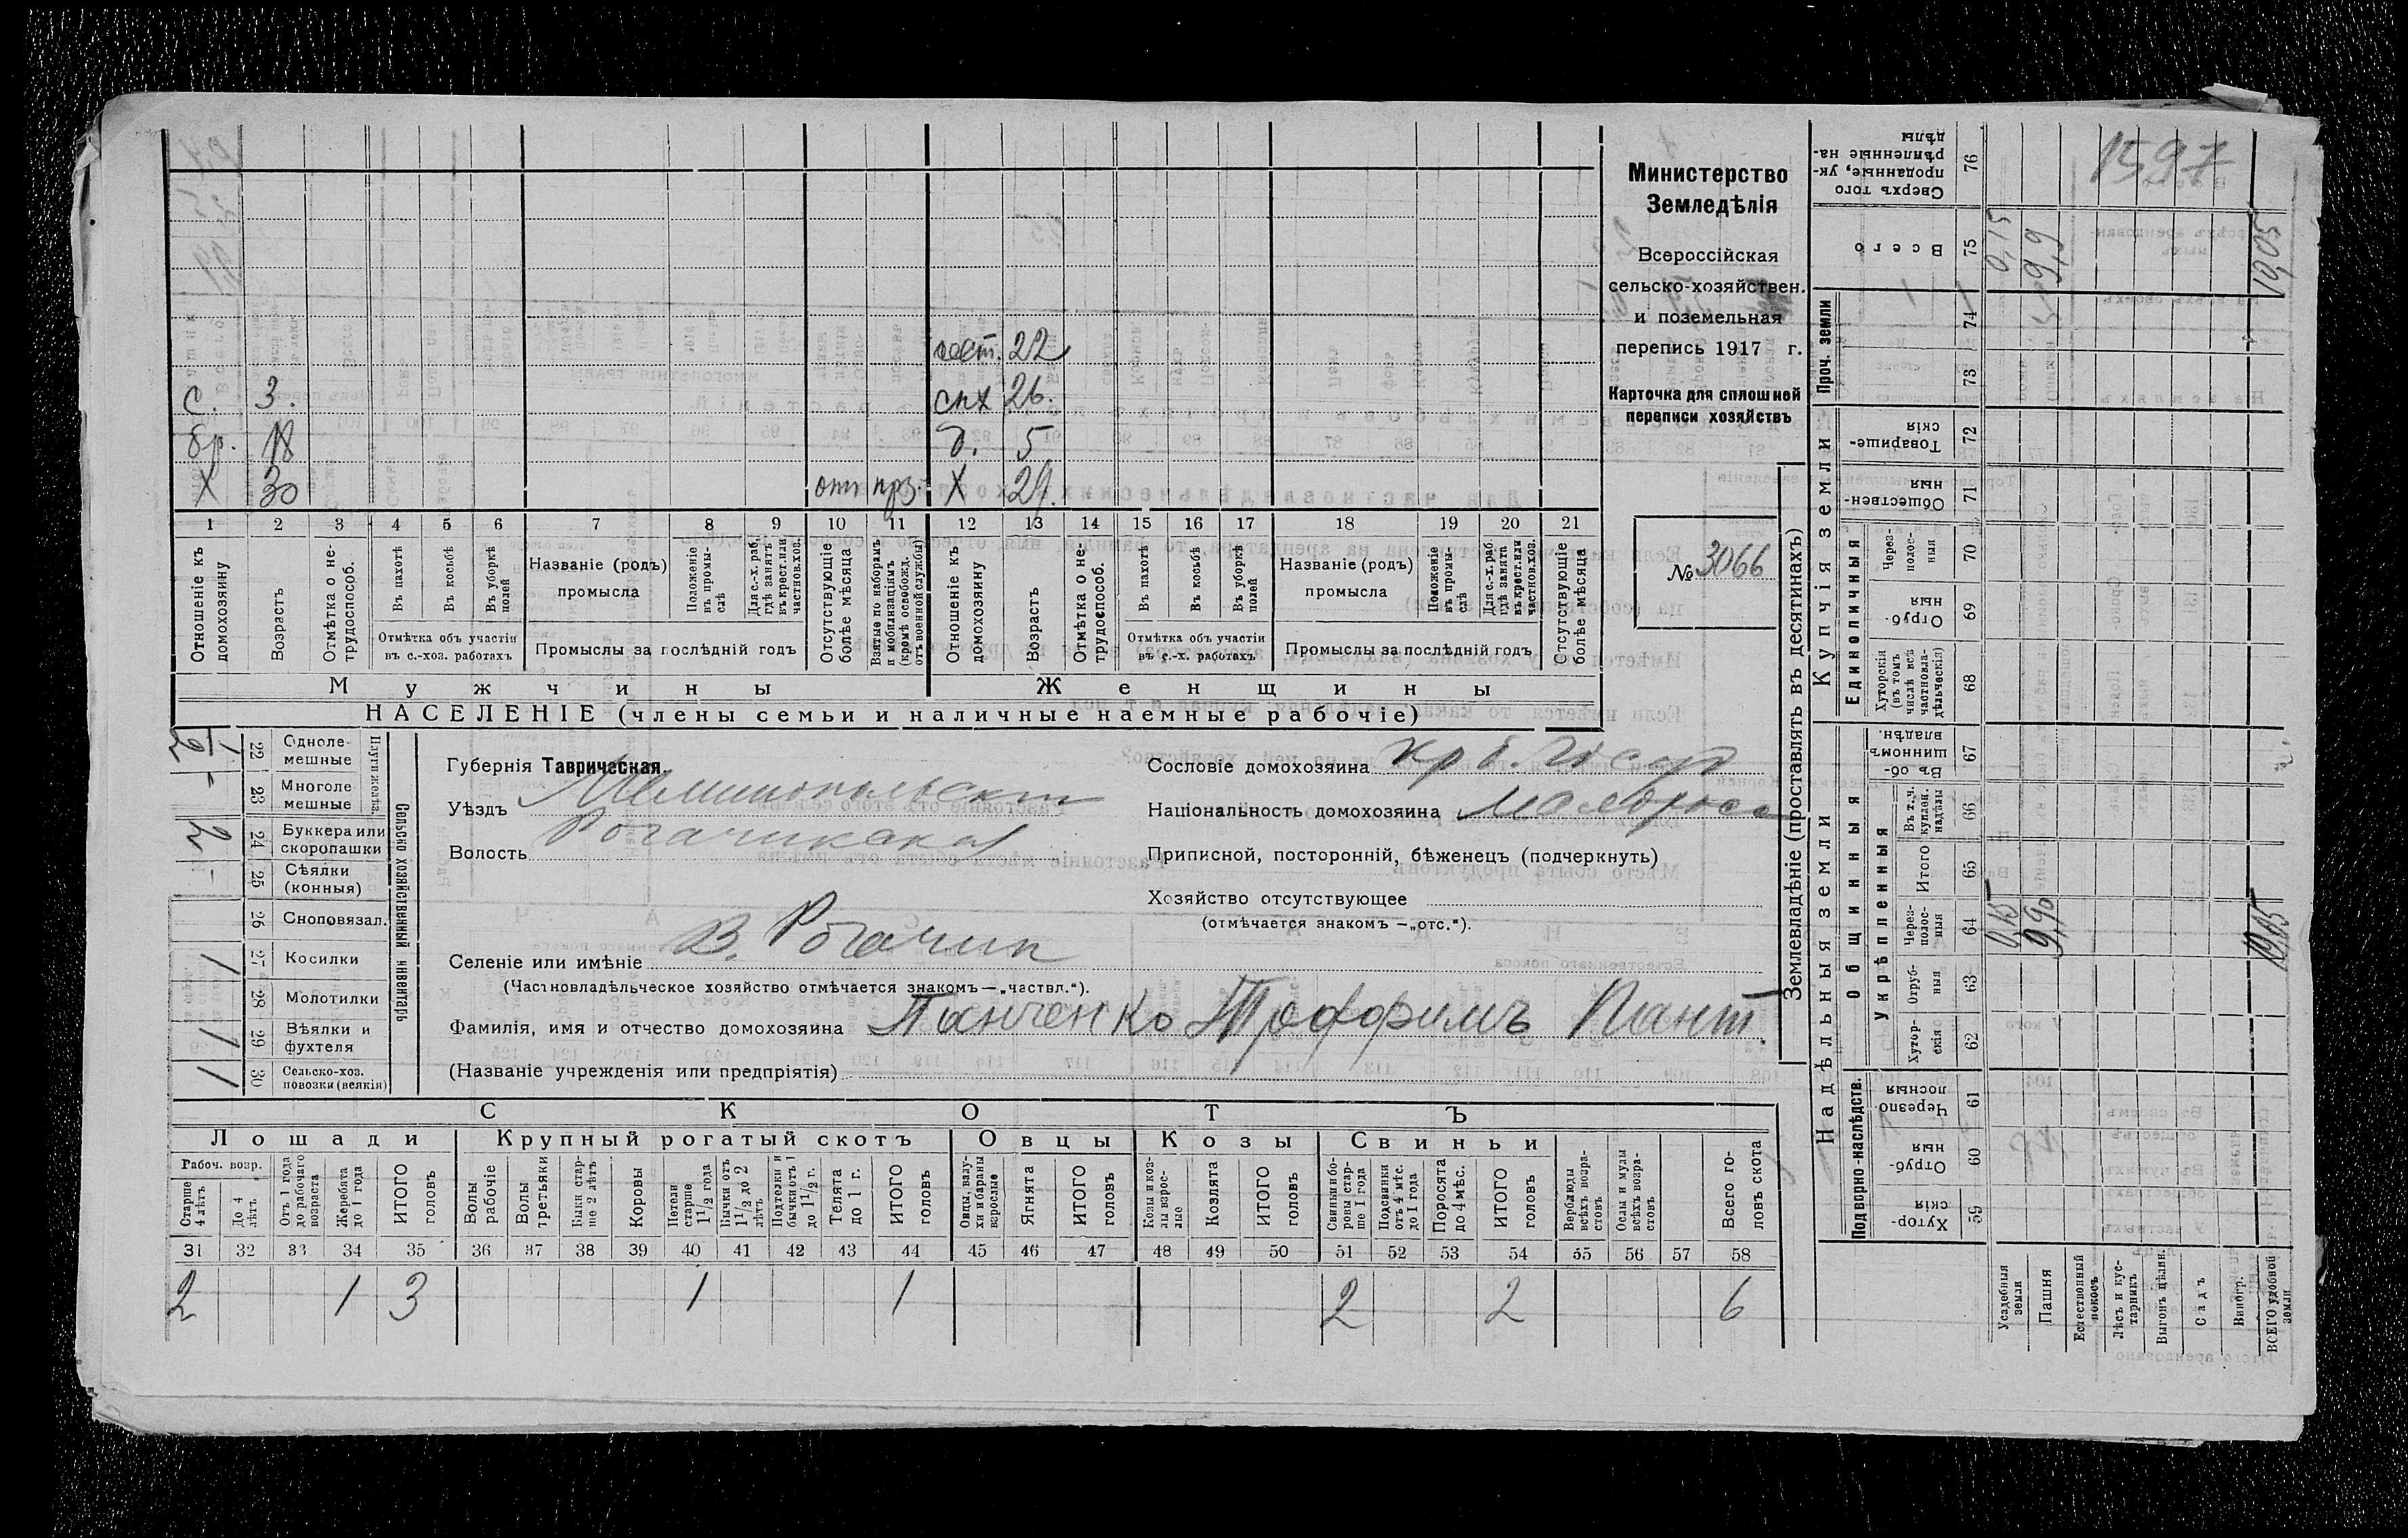 сест. 22
С. 3. снх 26.
бр. 18 д. 5
Х 30 отс прз. Х 29.
1 2 3 4 5 6 7 8 9 10 11 12 13 14 15 16 17 18 19 20 21
Отношеніе къ домохозяину
Возрастъ
Отмѣтка о не-трудоспособ.
Въ пахотѣ
Въ косьбѣ
Въ уборкѣ полей
Отмѣтка объ участіи
въ с.-хоз. работахъ
Названіе (родъ)
промысла
Положеніе въ промы-слѣ
Для с.-х. раб. гдѣ занятъ въ крест. или частнов. хоз.
Промыслы за послѣдній годъ
Отсутствующіе болѣе мѣсяца
Взятые по наборамъ и мобилизаціямъ (кромѣ освобожд. отъ военной службы)
Отношеніе къ домохозяину
Возрастъ
Отмѣтка о не-трудоспособ.
Въ пахотѣ
Въ косьбѣ
Въ уборкѣ полей
Отмѣтка объ участіи
въ с.-х. работахъ
Названіе (родъ)
промысла
Положеніе въ промы-слѣ
Для с.-х. раб. гдѣ занята въ крест. или частнов. хоз.
Промыслы за послѣдній годъ
Отсутствующіе болѣе мѣсяца
Мужчины Женщины
НАСЕЛЕНІЕ (члены семьи и наличные наемные рабочіе)
Министерство
Земледѣлія
Всероссійская
сельско-хозяйствен.
и поземельная
перепись 1917 г.
Карточка для сплошной
переписи хозяйствъ
№ 3066
Сельско хозяйственный инвентарь
22 Одноле-мешные
23 Многоле мешные
2 24 Буккера или скоропашки
25 Сѣялки (конныя)
26 Сноповязал.
1 27 Косилки
28 Молотилки
1 29 Вѣялки и фухтеля
1 30 Сельско-хоз. повозки (всякія)
Губернія Таврическая
Уѣздъ Мелитопольскій
Волость Рогачикская
Селеніе или имѣніе В. Рогачик
(Частновладѣльческое хозяйство отмѣчается знакомъ—„частвл.“).
Фамилія, имя и отчество домохозяина Панченко Трофимъ Пант.
(Названіе учрежденія или предпріятія)
Сословіе домохозяина
Національность домохозяина малоросс
Приписной, посторонній, бѣженецъ (подчеркнуть)
Хозяйство отсутствующее
(отмѣчается знакомъ —„отс.“).
СКОТЪ
Лошади Крупный рогатый скотъ Овцы Козы Свиньи
Рабоч. возр.
Старше 4 лѣтъ
До 4 лѣтъ
Отъ 1 года до рабочаго возраста
Жеребята до 1 года
ИТОГО головъ
Волы рабочіе
Волы третьяки
Быки стар-ше 2 лѣтъ
Коровы
Нетели старше 1 1/2 года
Бычки отъ 1 1/2 до 2 лѣтъ
Подтелки и бычки отъ 1 до 1 1/2 г.
Телята до 1 г.
ИТОГО головъ
Овцы, валу-хи и бараны взрослые
Ягнята
ИТОГО головъ
Козы и коз-лы взрос-лые
Козлята
ИТОГО головъ
Свиньи и бо-ровы стар-ше 1 года
Подсвинки отъ 4 мѣс. до 1 года
Поросята до 4 мѣс.
ИТОГО головъ
Верблюды всѣхъ возра-стовъ
Ослы и мулы всѣхъ возра-стовъ
Всего го-ловъ скота
31 32 33 34 35 36 37 38 39 40 41 42 43 44 45 46 47 48 49 50 51 52 53 54 55 56 57 58
2 1 3 1 1 2 2 6
Землевладѣніе (проставлять въ десятинахъ)
Надѣльныя земли Купчія земли Проч. земли
Подворно-наслѣдств. Общинныя Единоличныя
Укрѣпленныя
Хутор-скія 59
Отруб-ныя 60
Черезпо-лосныя 61
Хутор-скія 62
Отруб-ныя 63
Через-полос-ныя 64
Итого 65
Въ т. ч. куплен. надѣлы 66
Въ об-щинномъ владѣн. 67
Хуторскія (въ томъ числѣ всѣ частновла-дѣльческія) 68
Отруб-ныя 69
Через-полос-ныя 70
Обществен-ныя 71
Товарище-скія 72
73
74
Всего 75
Сверхъ того проданные, ук-рѣпленные на-дѣлы 76
Усадебныя земли 0,15 0,15
Пашня 9,90 9,9
Естественный покосъ
Лѣсъ и кус-тарникъ
Выгонъ цѣлин.
Садъ
Виногр.
ВСЕГО удобной земли 10,05 10,05
1597